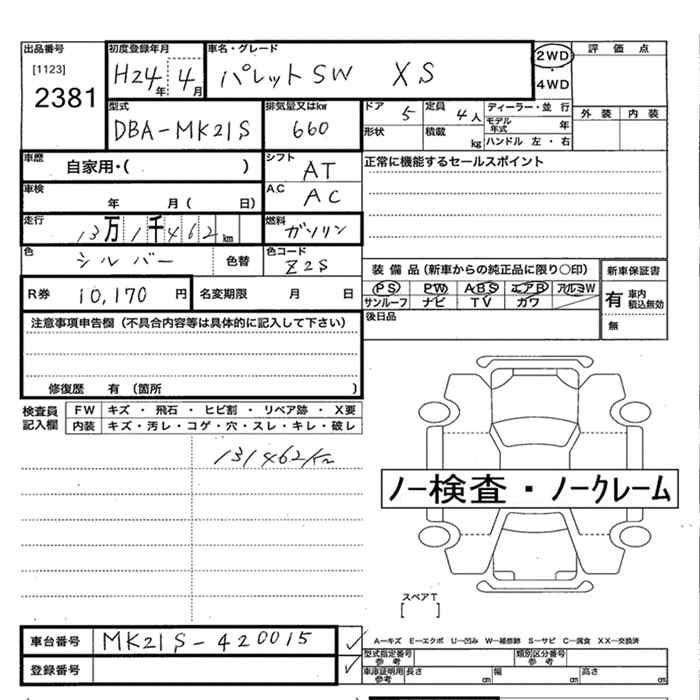 出品番号
[1123]
2381
初度登録年月
H24年 4月
車名・グレード
パレットSW XS
2WD
・
4WD
評価点
外装 内装
型式
DBA-MK21S
排気量又はkw
660
ドア 5
定員 4人
ディーラー・並行
形状
積載 kg
モデル年式 年
ハンドル 左・右
車歴
自家用・( )
シフト
AT
正常に機能するセールスポイント
車検
年 月( 日)
A.C
AC
走行
13万1千462km
燃料
ガソリン
色
シルバー
色替
色コード
Z2S
装備品(新車からの純正品に限り〇印)
PS PW ABS エアB アルミW
サンルーフ ナビ TV カワ
新車保証書
有 車内積込無効
無
R券 10,170円
名変期限 月 日
後日品
注意事項申告欄(不具合内容等は具体的に記入して下さい)
修復歴 有 (箇所 )
検査員記入欄
FW キズ・飛石・ヒビ割・リペア跡・X要
内装 キズ・汚レ・コゲ・穴・スレ・キレ・破レ
131462km
ノー検査・ノークレーム
スペアT
[ ]
車台番号 MK21S-420015
A-キズ E-エクボ U-凹み W-補修跡 S-サビ C-腐食 XX-交換済
登録番号
型式指定番号 参考
類別区分番号 参考
車庫証明用 参考 長さ cm 幅 cm 高さ cm